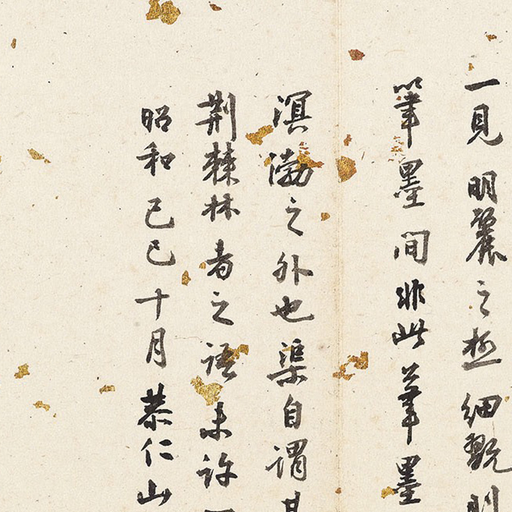 一見明麗之極細翫則
筆墨間非此筆墨
溟渤之外也渠自謂其
荊棘林者之語未許
昭和己巳十月恭仁山